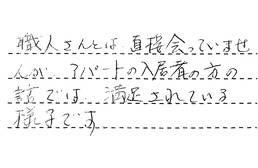 職人さんとは、直接会っていませ
んが、アパートの入居者の方の
話では、満足されている
様子です